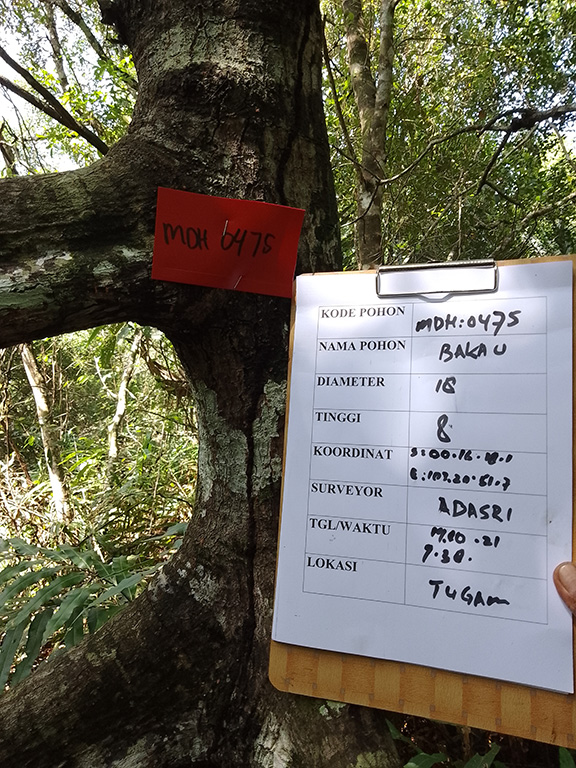 MDH 0475
KODE POHON MDH:0475
NAMA POHON BAKAU
DIAMETER 18
TINGGI 8
KOORDINAT S:00.16.18.1
E:107.20.51.7
SURVEYOR ADASRI
TGL/WAKTU 17.10.21
9.30.
LOKASI TUGAM